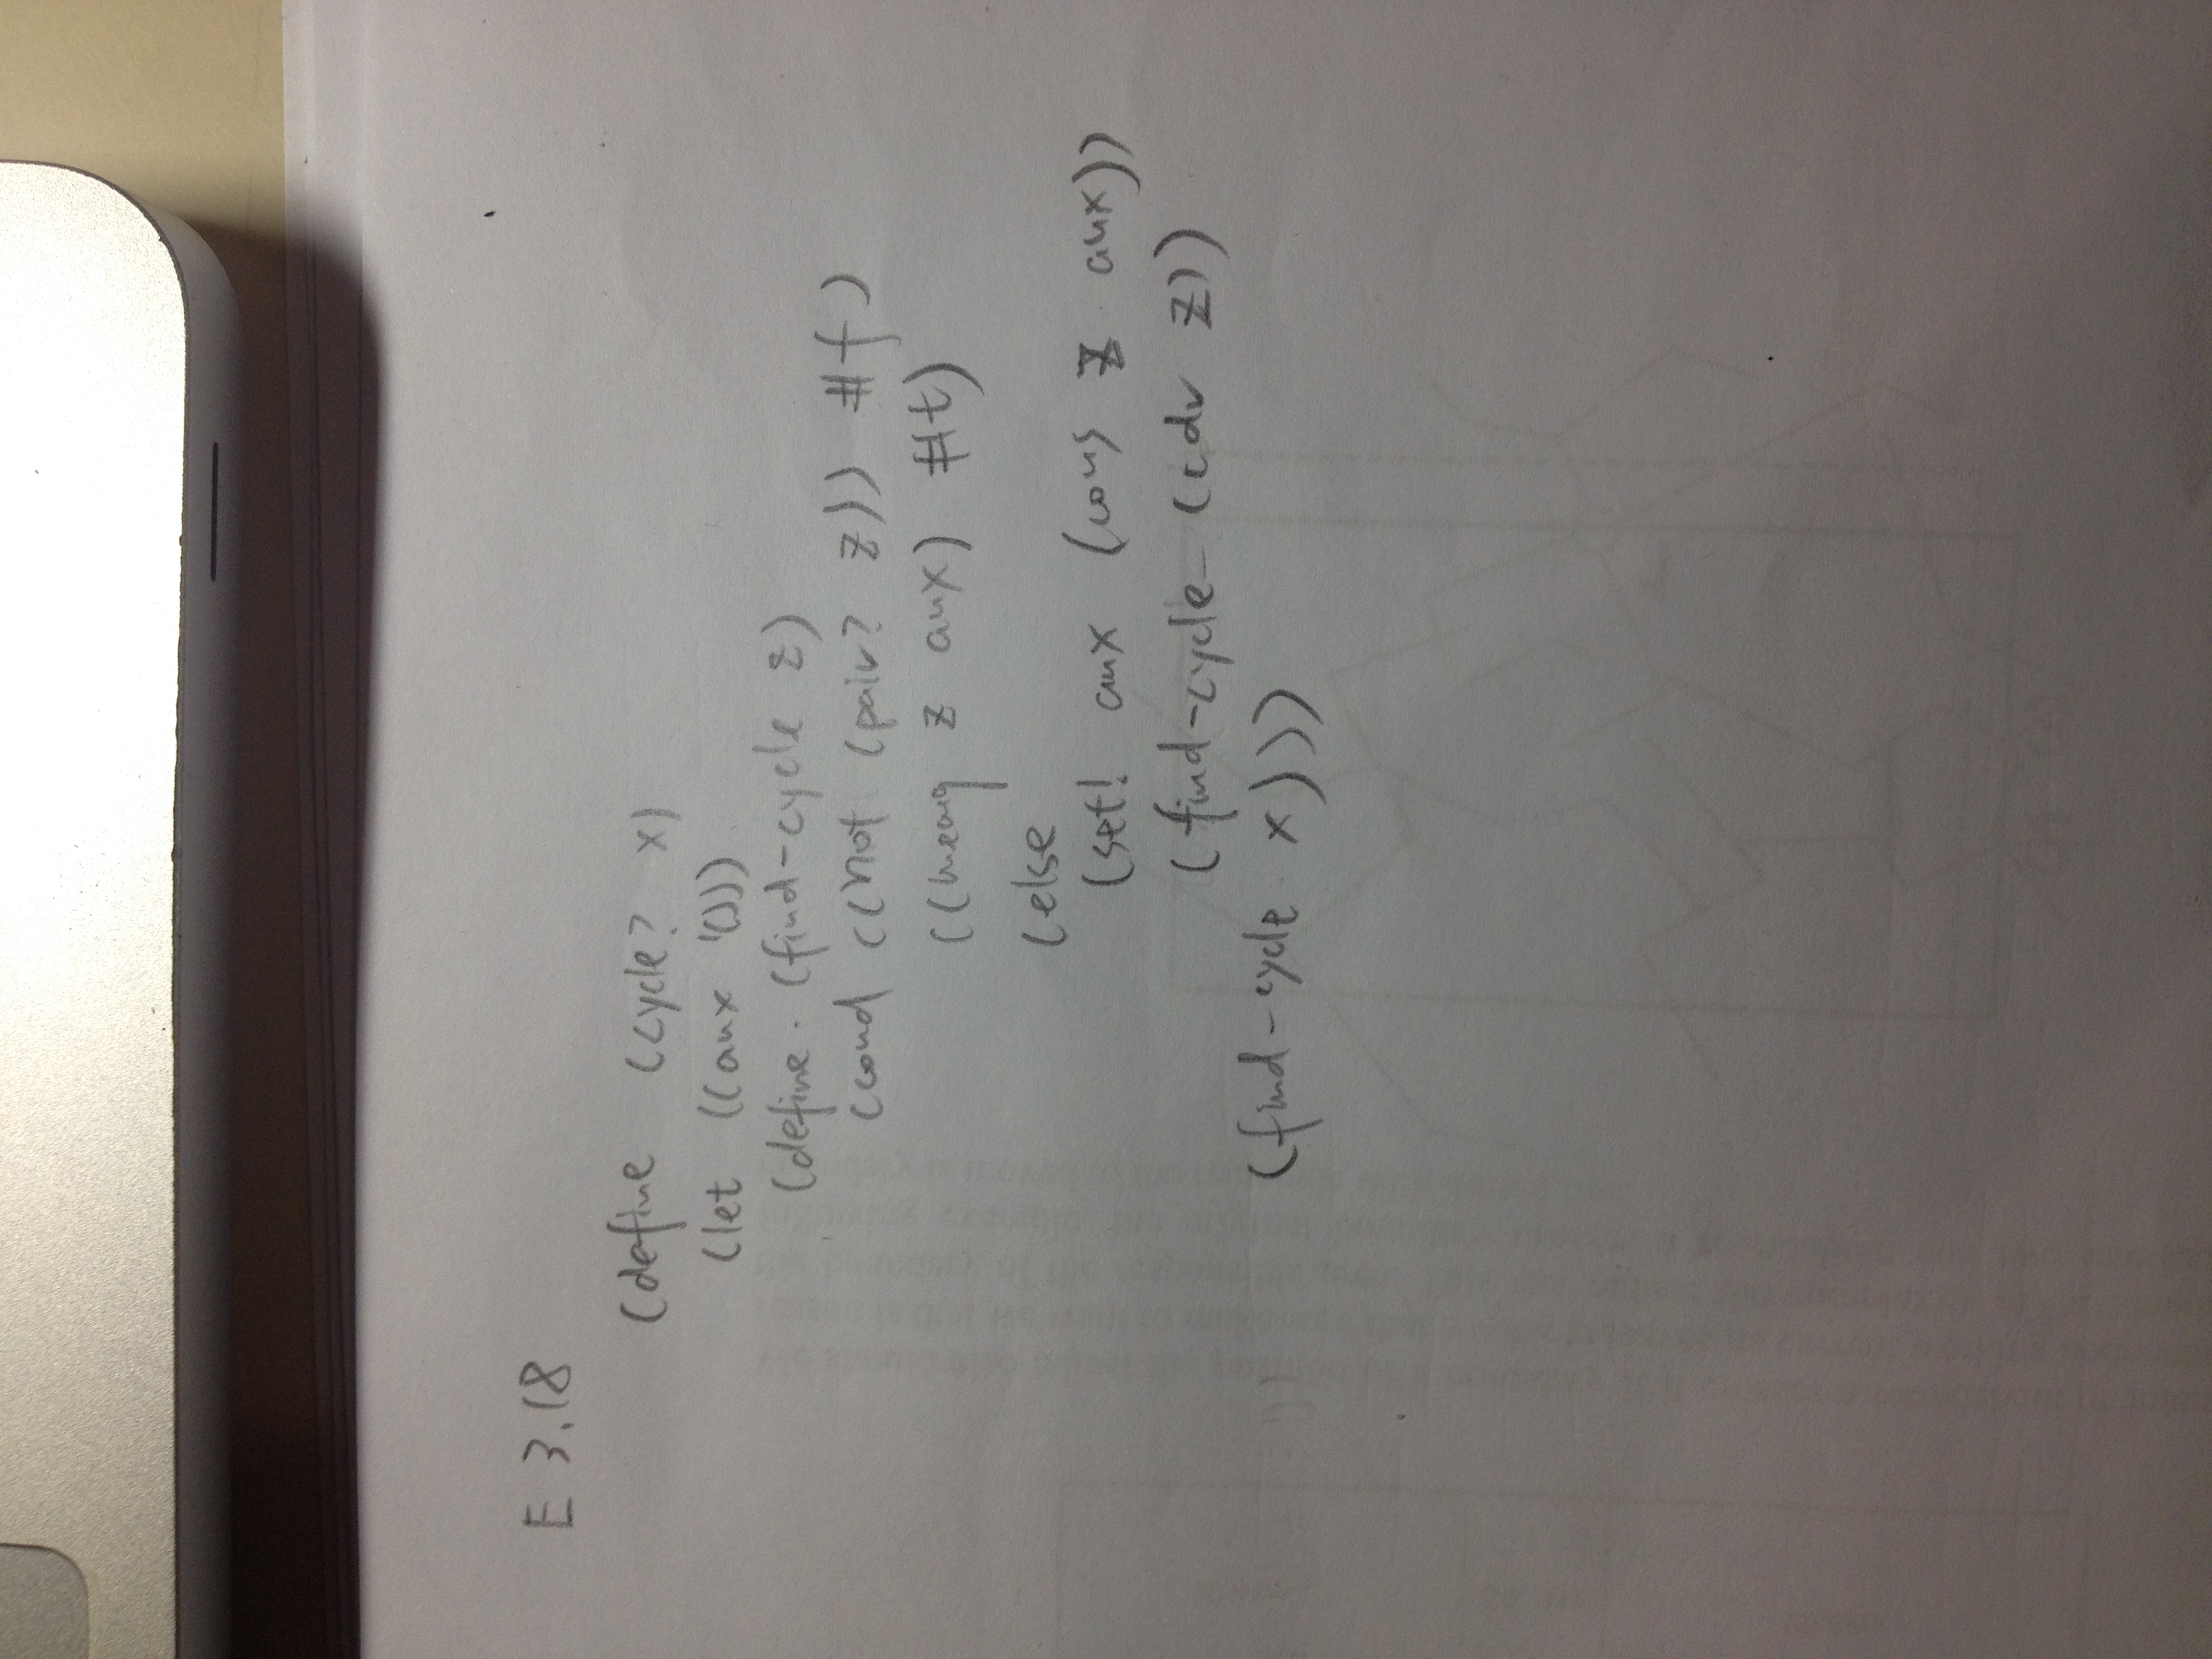 E 3.18
(define (cycle? x)
(let ((aux '()))
(define (find-cycle z)
(cond ((not (pair? z)) #f)
((memq z aux) #t)
(else
(set! aux (cons z aux))
(find-cycle (cdr z))
(find-cycle x)))